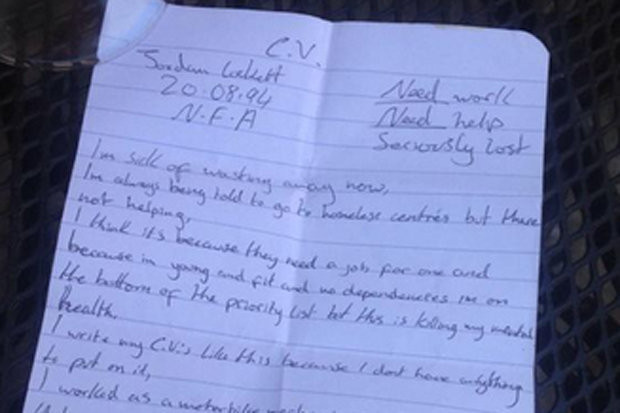 C.V.
Jordan
20.08.94
N.F.A
Need work
Need help
Seriously lost
Im sick of wasting away now,
Im always being told to go to homeless centres but there
not helping,
I think its because they need a job for one and
because im young and fit and no dependences im on
the bottom of the priority list but this is killing my mental
health.
I write my C.V.'s like this because I dont have anything
to put on it,
I worked as a motorbike